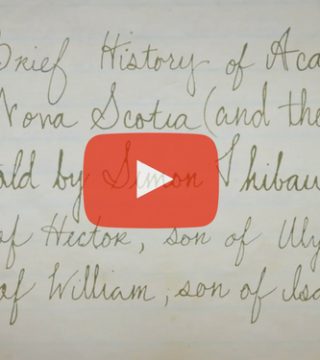 Brief History of Aca
Nova Scotia (and the
old by Simon Thibau
of Hector, son of Uly
of William, son of Isa